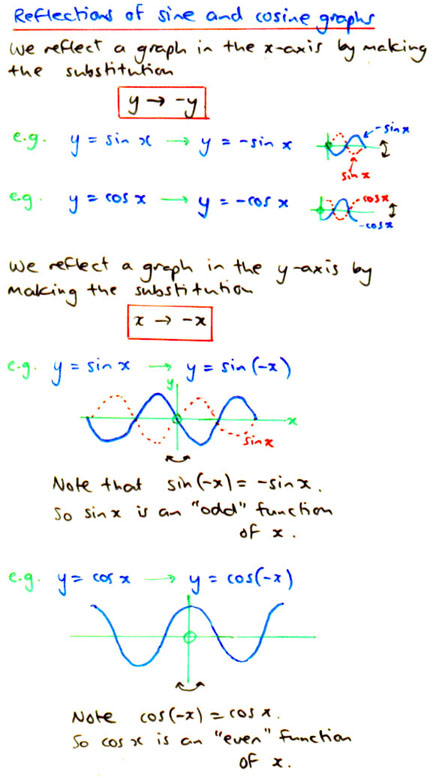 Reflections of sine and cosine graphs
We reflect a graph in the x-axis by making
the substitution
y → -y
e.g. y = sin x → y = -sin x
-sin x
sin x
e.g. y = cos x → y = -cos x
cos x
-cos x
We reflect a graph in the y-axis by
making the substitution
x → -x
e.g. y = sin x → y = sin(-x)
y
x
sin x
Note that sin(-x) = -sin x.
So sin x is an "odd" function
of x.
e.g. y = cos x → y = cos(-x)
Note cos(-x) = cos x.
So cos x is an "even" function
of x.